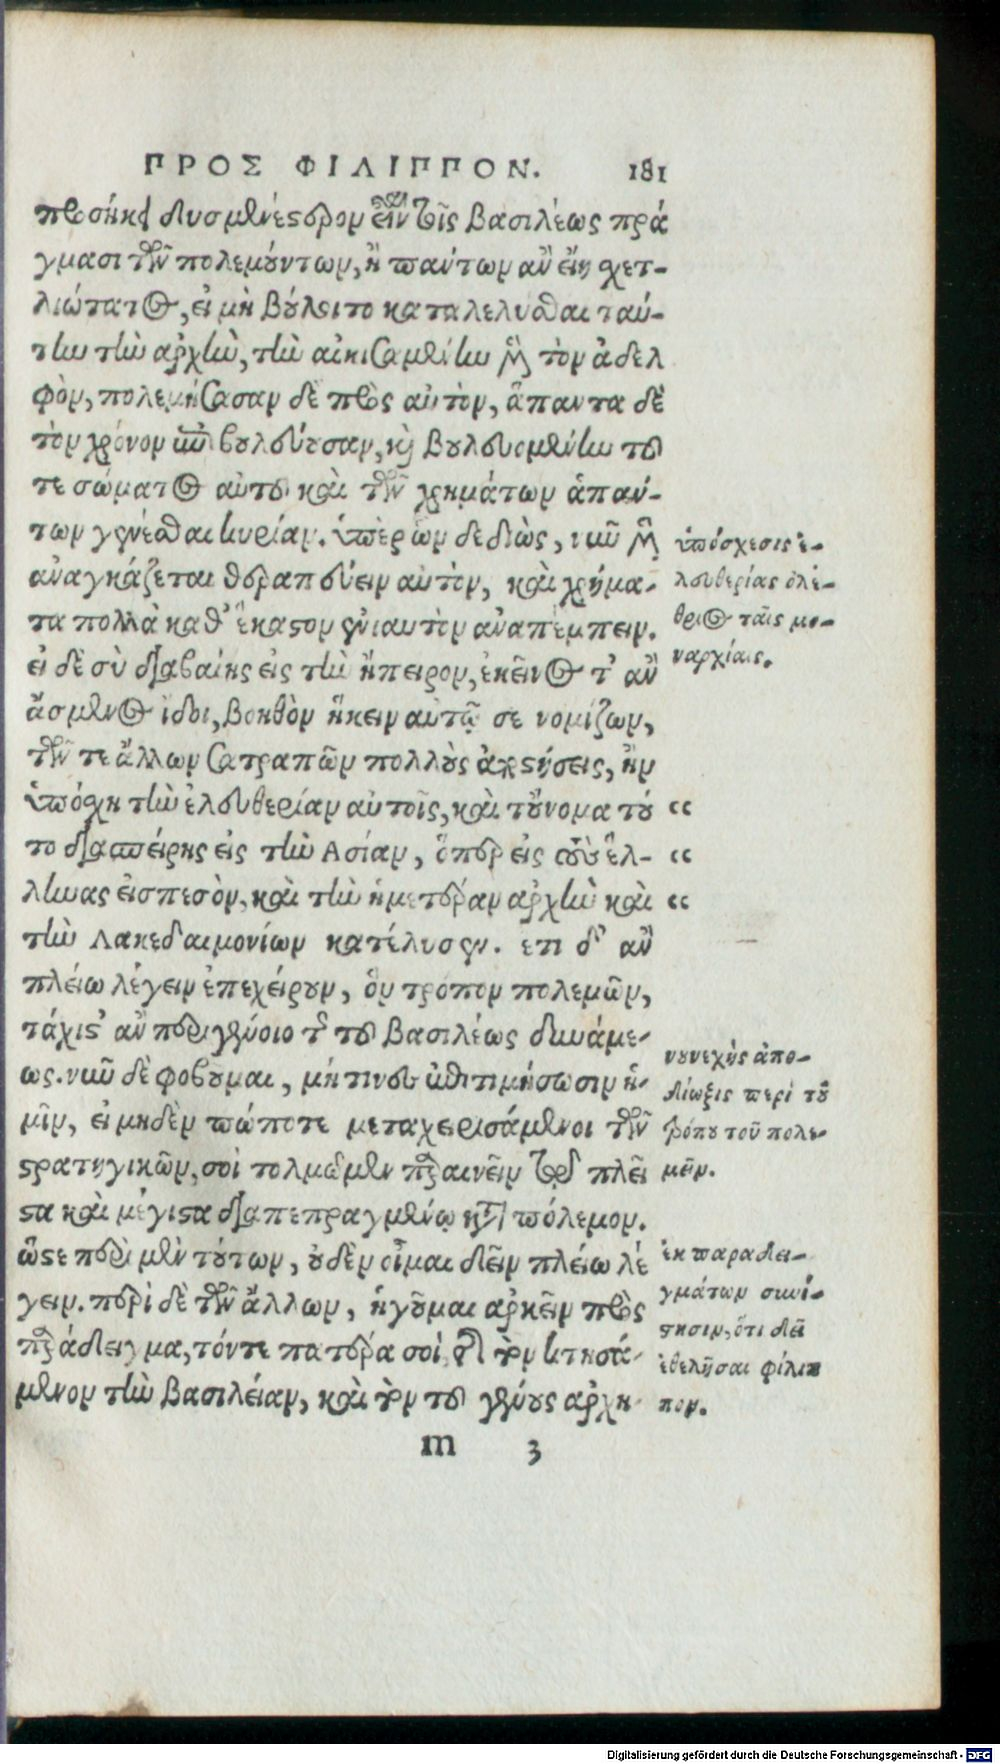 ΠΡΟΣ ΦΙΛΙΠΠΟΝ. 181
προσήκει δυσμενέστερον εἶναι τοῖς βασιλέως πρά
γμασι τῶν πολεμούντων, ἢ πάντων ἂν εἴη σχετ-
λιώτατος, εἰ μὴ βούλοιτο καταλελύσθαι ταύ-
την τὴν ἀρχὴν, τὴν αἰκισαμένην μὲν τὸν ἀδελ
φὸν, πολεμήσασαν δὲ πρὸς αὐτὸν, ἅπαντα δὲ
τὸν χρόνον ἐπιβουλεύουσαν, καὶ βουλευομένην τοῦ
τε σώματος αὐτοῦ καὶ τῶν χρημάτων ἁπάν-
των γενέσθαι κυρίαν. ὑπὲρ ὧν δεδιὼς, νῦν μὲν
ἀναγκάζεται θεραπεύειν αὐτὸν, καὶ χρήμα-
τα πολλὰ καθ' ἕκαστον ἐνιαυτὸν ἀναπέμπειν.
εἰ δὲ σὺ διαβαίης εἰς τὴν ἤπειρον, ἐκεῖνος τ' ἂν
ἄσμενος ἴδοι, βοηθὸν ἥκειν αὐτῷ σε νομίζων,
τῶν τε ἄλλων σατραπῶν πολλοὺς ἀποστήσεις, ἢν
ὑπόσχῃ τὴν ἐλευθερίαν αὐτοῖς, καὶ τοὔνομα τοῦ
το διασπείρῃς εἰς τὴν Ἀσίαν, ὅπερ εἰς τοὺς ἕλ-
ληνας εἰσπεσὸν, καὶ τὴν ἡμετέραν ἀρχὴν καὶ
τὴν Λακεδαιμονίων κατέλυσεν. ετι δ' ἂν
πλείω λέγειν ἐπεχείρουν, ὃν τρόπον πολεμῶν,
τάχιστ' ἂν περιγένοιο τῆς τοῦ βασιλέως δυνάμε-
ως. νῦν δὲ φοβοῦμαι, μή τινες ἐπιτιμήσωσιν ἡ-
μῖν, εἰ μηδὲν πώποτε μεταχειρισάμενοι τῶν
στρατηγικῶν, σοὶ τολμῶμεν παραινεῖν τῷ πλεῖ
στα καὶ μέγιστα διαπεπραγμένῳ κατὰ πόλεμον.
ὥστε περὶ μὲν τούτων, οὐδὲν οἶμαι δεῖν πλείω λέ
γειν. περὶ δὲ τῶν ἄλλων, ἡγοῦμαι ἀρκεῖν πρὸς
παράδειγμα, τόν τε πατέρα σοι, καὶ τὸν κτησά-
μενον τὴν βασιλείαν, καὶ τὸν τοῦ γένους ἀρχη-
m 3
ὑπόσχεσις ἐ-
λευθερίας ὀλέ-
θριος ταῖς μο-
ναρχίαις.
“
“
“
νουνεχὴς ἀπο-
δίωξις περὶ τοῦ
τρόπου τοῦ πολε-
μεῖν.
ἐκ παραδει-
γμάτων συνί-
στησιν, ὅτι δεῖ
ἐθελῆσαι φίλιπ
πον.
Digitalisierung gefördert durch die Deutsche Forschungsgemeinschaft - DFG